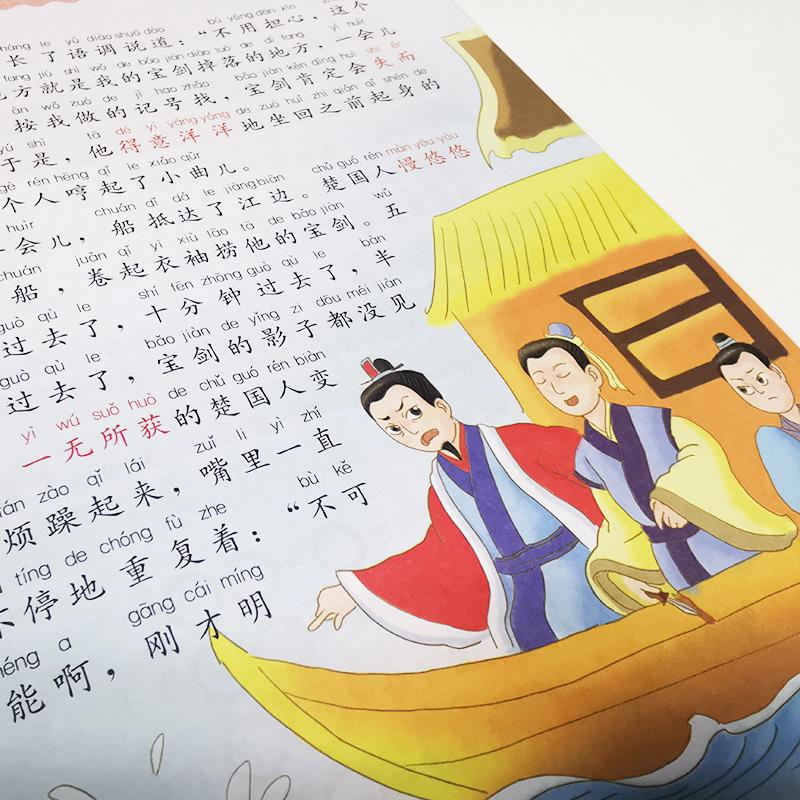 háng le yǔ diào shuō dào bú yòng dān xīn
长了语调说道：“不用担心，这个
fang jiù shì wǒ de bǎo jiàn diào luò de dì fang yí huìr
方就是我的宝剑掉落的地方，一会儿
àn wǒ zuò de jì hao zhǎo bǎo jiàn kěn dìng huì shī ér
按我做的记号找，宝剑肯定会失而
yú shì tā dé yì yáng yáng de zuò huí zhī qián qǐ shēn de
于是，他得意洋洋地坐回之前起身的
gè rén hēng qǐ le xiǎo qǔr
个人哼起了小曲儿。
huìr chuán dǐ dá le jiāng biān chǔ guó rén màn yōu yōu
一会儿，船抵达了江边。楚国人慢悠悠
chuán juǎn qǐ yī xiù lāo tā de bǎo jiàn wǔ
船，卷起衣袖捞他的宝剑。五
guò qù le shí fēn zhōng guò qù le bàn
过去了，十分钟过去了，半
guò qù le bǎo jiàn de yǐng zi dōu méi jiàn
过去了，宝剑的影子都没见
yì wú suǒ huò de chǔ guó rén biàn
一无所获的楚国人变
fán zào qǐ lái zuǐ li yì zhí
烦躁起来，嘴里一直
tíng de chóng fù zhe bù kě
不停地重复着：“不可
néng a gāng cái míng
能啊，刚才明